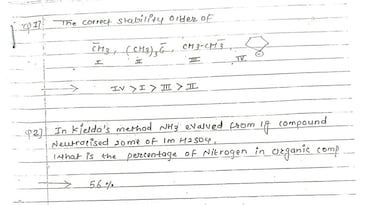 Q1] The correct stability order of
C̄H3 , (CH3)3C̄ , CH3-C̄H2 ,
I II III IV
→ IV > I > III > II
Q2] In Kjelda's method NH3 evalved from 1g compound
Neutratised 20ml of 1m H2SO4,
What is the percentage of Nitrogen in organic comp
→ 56%